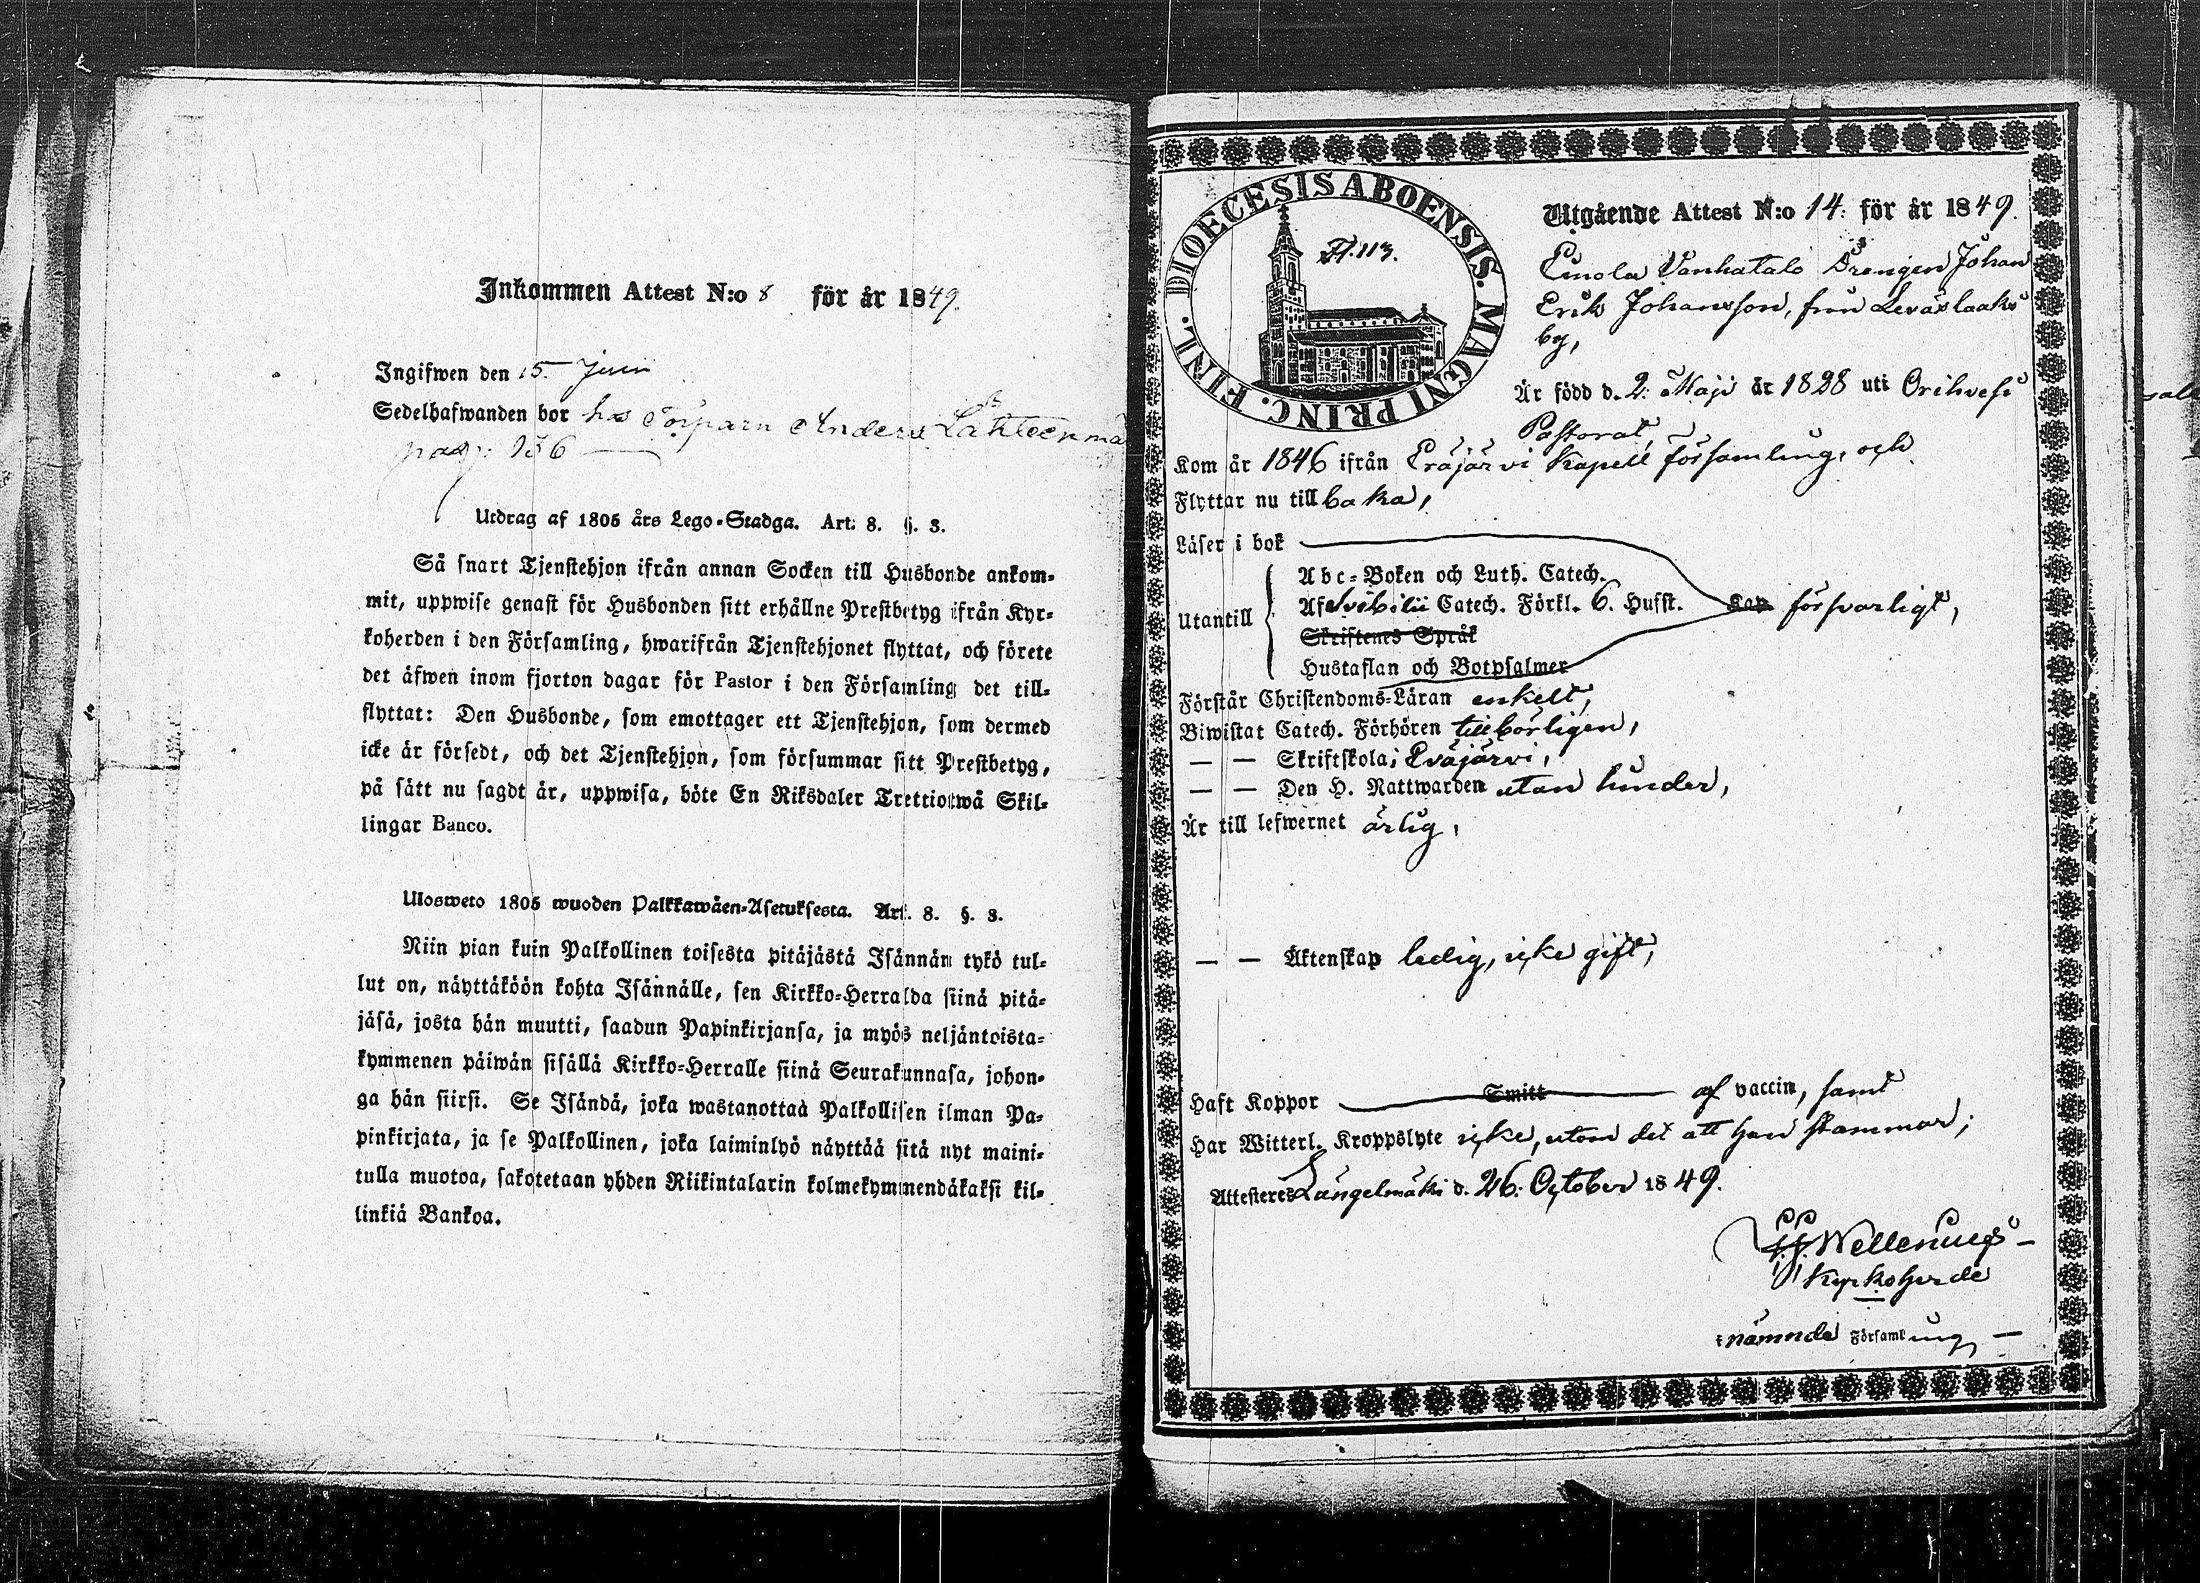 Inkommen Attest N:o 8 för år 1849.
Ingifwen den 15. Juni
Sedelhafwanden bor hos Torparn Anders Lähteenmä
pag: 136
Utdrag af 1805 års Lego-Stadga. Art: 8. §. 3.
Så snart Tjenstehjon ifrån annan Socken till Husbonde ankom-
mit, uppwise genast för Husbonden sitt erhållne Prestbetyg ifrån Kyr-
koherden i den Församling, hwarifrån Tjenstehjonet flyttat, och förete
det äfwen inom fjorton dagar för Pastor i den Församling det till-
flyttat: Den Husbonde, som emottager ett Tjenstehjon, som dermed
icke är försedt, och det Tjenstehjon, som försummar sitt Prestbetyg,
på sätt nu sagdt är, uppwisa, böte En Riksdaler Trettiotwå Skil-
lingar Banco.
Ulosweto 1805 wuoden Palkkawäen-Asetuksesta. Art. 8. §. 3.
Niin pian kuin Palkollinen toisesta pitäjästä Isännän tykö tul-
lut on, näyttäköön kohta Isännälle, sen Kirkko-Herralda siinä pitä-
jäsä, josta hän muutti, saadun Papinkirjansa, ja myös neljäntoista-
kymmenen päiwän sisällä Kirkko-Herralle siinä Seurakunnasa, johon-
ga hän siirsi. Se Isändä, joka wastanottaa Palkollisen ilman Pa-
pinkirjata, ja se Palkollinen, joka laiminlyö näyttää sitä nyt maini-
tulla muotoa, sakotetaan yhden Riikintalarin kolmekymmendäkaksi kil-
linkiä Bankoa.
DIOECESIS ABOENSIS. MAGNI PRINC. FINL.
113.
Utgående Attest N:o 14. för år 1849.
Vanhatalo Drengen Johan
Erik Johansson, från Leväslaaks
by,
Är född d. 2. Maji år 1828 uti Orihvesi
Pastorat,
Kom år 1846 ifrån Eräjärvi Kapell församling, och
Flyttar nu tillbaka,
Läser i bok
Utantill
Abc-Boken och Luth. Catech.
Af Svebilii Catech. Förkl. 6. Hufst. Kap. försvarligt,
Skriftenes Språk
Hustaflan och Botpsalmer
Förstår Christendoms-Läran enkelt,
Biwistat Catech. Förhören tillbörligen,
— — Skriftskola i Eräjärvi,
— — Den H. Nattwarden utan hinder,
Är till lefwernet ärlig,
— — Äktenskap ledig, icke gift,
Haft Koppor Smitt af vaccin, samt
Har Witterl. Kroppslyte icke, utom det att han stammar;
Attesteres Längelmäki d. 26. October 1849.
Kyrkoherde
nämnde Församling —